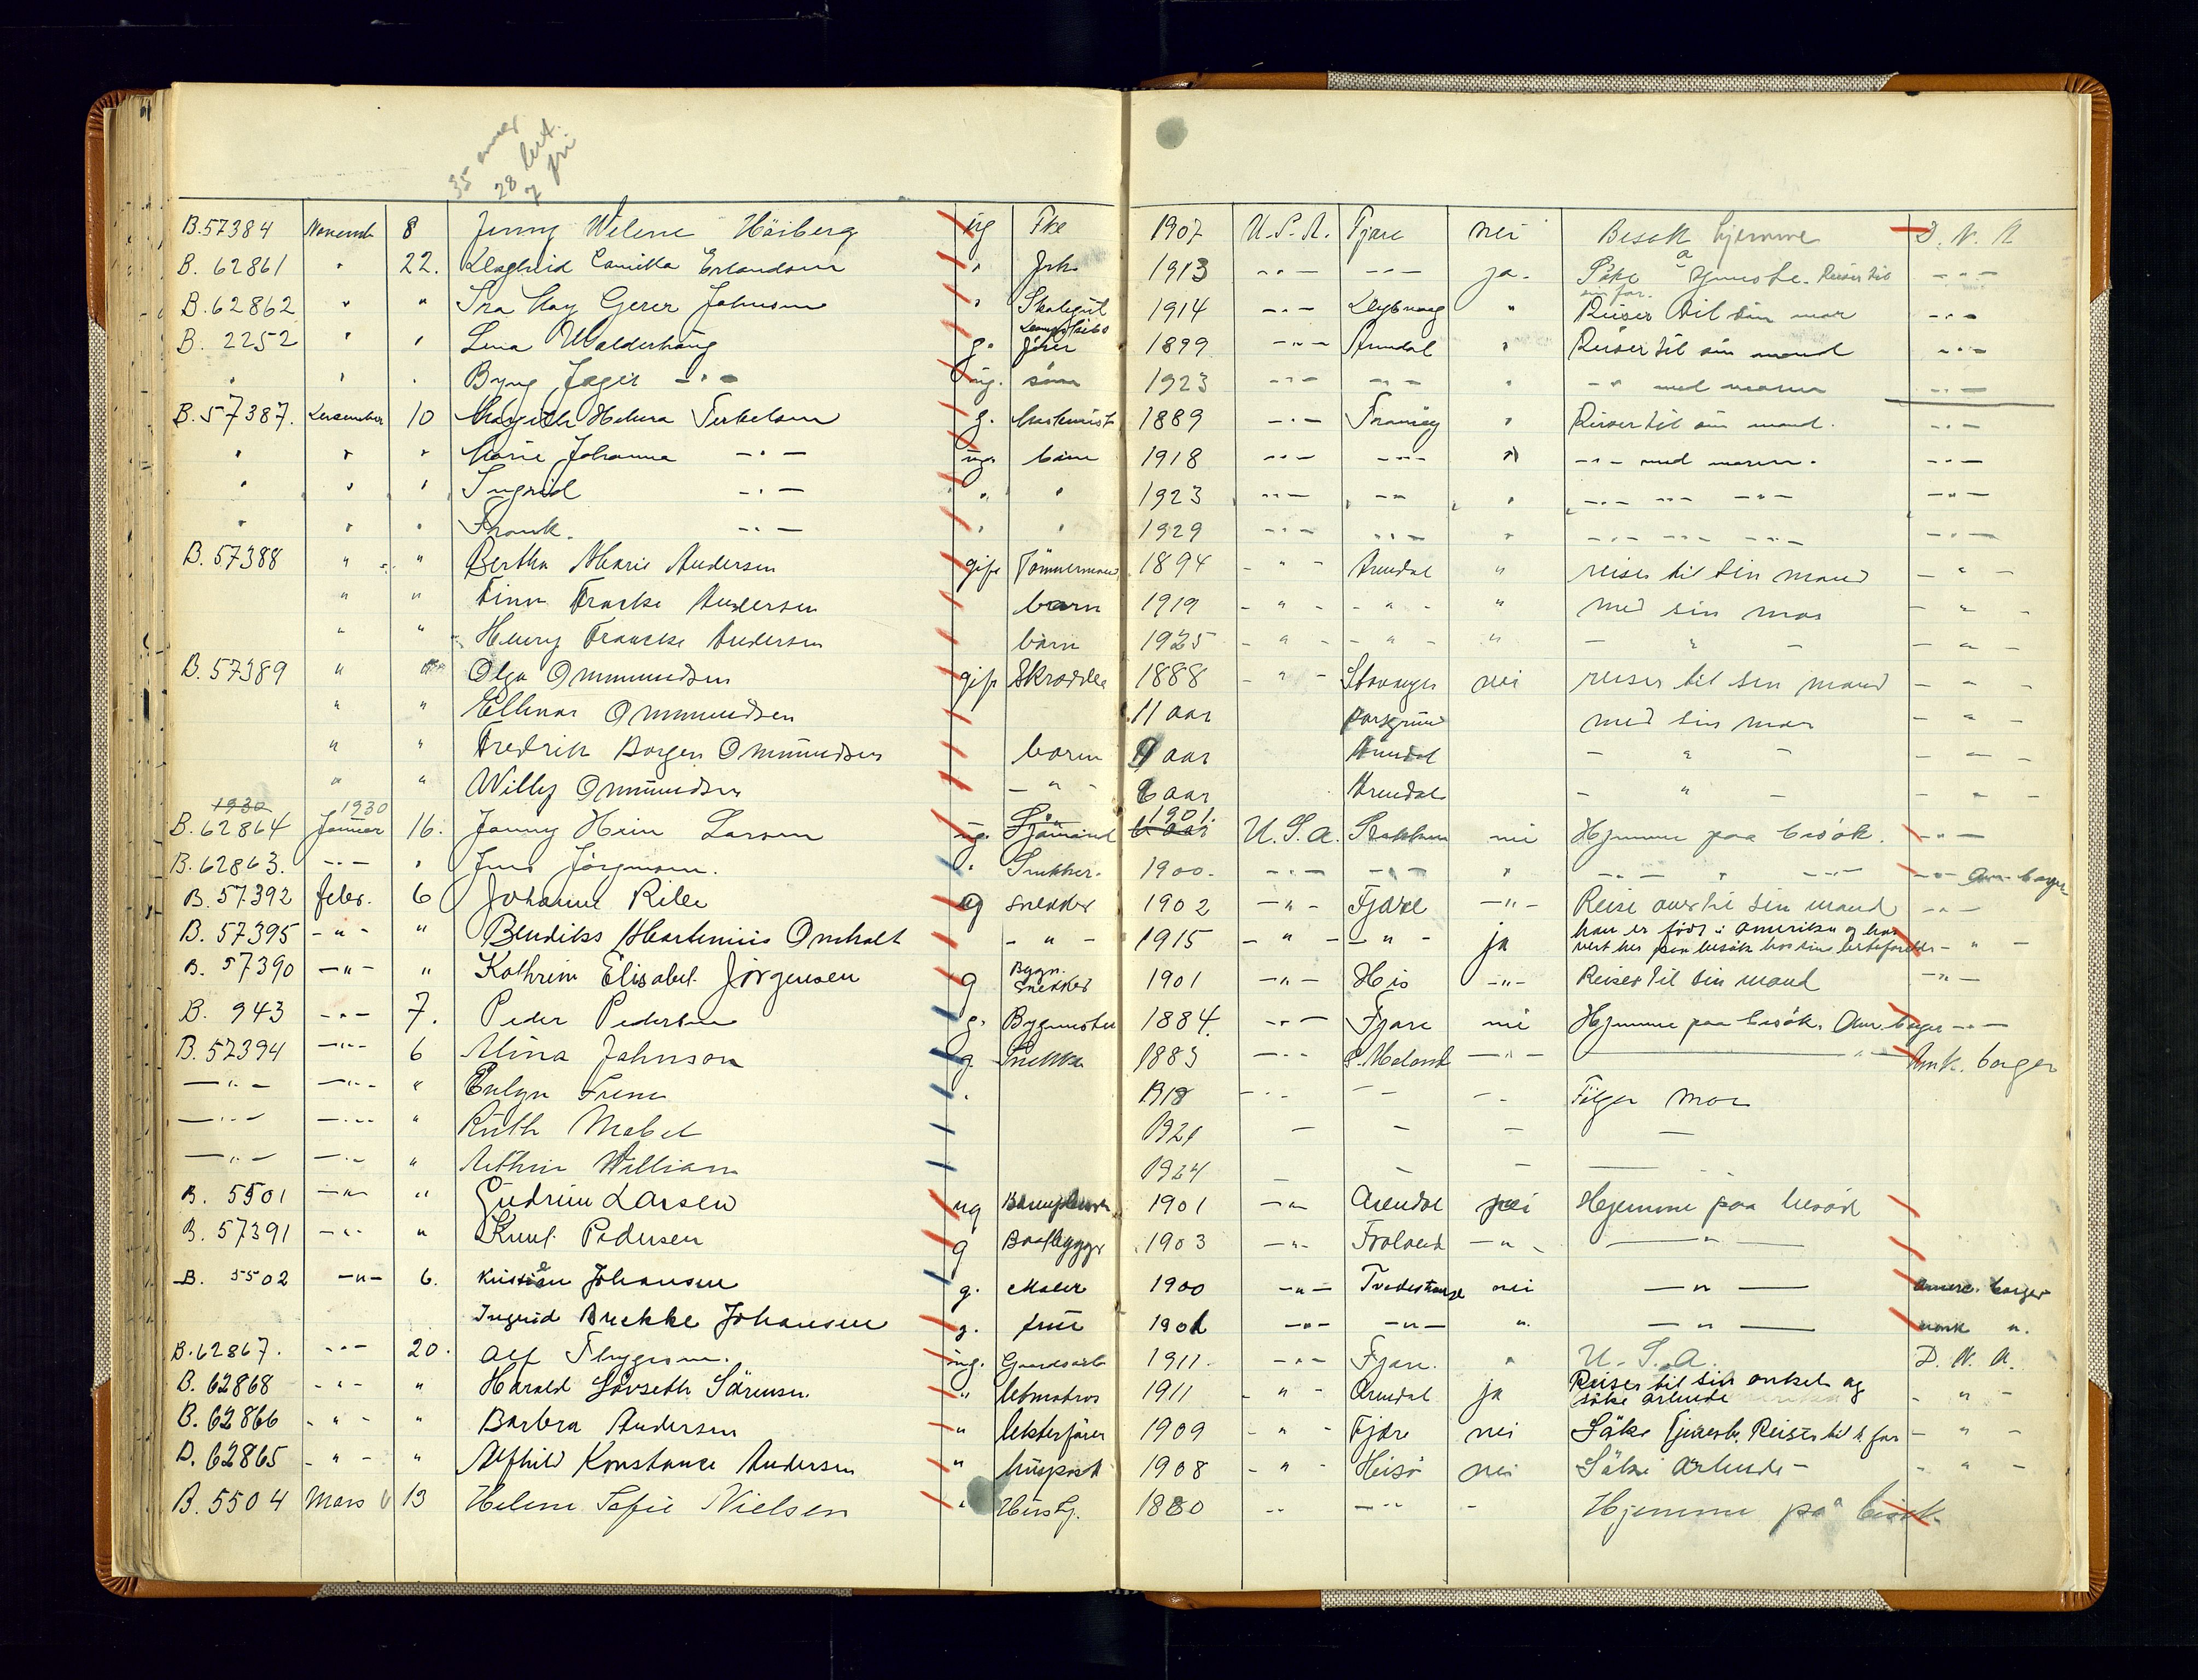 35
28
7 fri
B.57384 Novemb 8 Jenny Helene Höiberg ug 1907 U.S.A. Fjære nei Besøk hjemme D.N.A
B. 62861 " 22. Camilla Erlandsen " 1913 -"- -"- ja. Søke tjeneste. Reiser til sin far. -"-
B.62862 " " May Johnsen " 1914 -"- " Reiser til sin mor -"-
B. 2252 " " Lena Walderhaug g. fører 1899 -"- Arendal " Reiser til sin mand -"-
" " " -"- ug. sönn 1923 -"- -"- " -"- med moren -"-
B.57387. Desember 10 Helena Terkelsen g. 1889 -"- Tromöy " Reiser til sin mand. -"-
" " " Marie Johanna -"- ug. barn 1918 -"- -"- " -"- med moren. -"-
" " " Ingrid -"- " " 1923 -"- -"- " -"- -"- -"- -"-
" " " Frank. -"- " " 1929 -"- -"- " -"- -"- -"- -"-
B.57388 " " Bertha Marie Andersen gift Tömmermand 1894 - " - Arendal " reiser til sin mand - " -
" " Finn Andersen barn 1919 - " - - " - " med sin mor - " -
" " Henry Andersen barn 1925 - " - - " - " - " - - " -
B.57389 " " Olga Ommundsen gift Skrædder 1888 - " - Stavanger nei reiser til sin mand - " -
" " Ellinor Ommundsen 11 aar Porsgrund med sin mor - " -
" " Fredrik Borgen Ommundsen barn 9 aar Arendal - " - - " -
" " Willy Ommundsen - " - 6 aar Arendal - " - - " -
1930 1930
B. 62864 Januar 16. Jenny Larsen ug. Sjømand 1901. U.S.A. Stokken nei Hjemme paa besøk. -"-
B.62863. -"- " Jens Jörgensen. " Snekker. 1900. -"- -"- " -"- " -"- -"- Am. borger
B.57392 febr. 6 Johanne g snekker 1902 -"- Fjære -"- Reise over til sin mand -"-
B. 57395 -"- " Bendiks Martinius Omholt - " - 1915 - " - - " - ja han er født i Amerika og har vert her paa besøk hos sin besteforelder - " -
B. 57390 -"- " Kathrine Elisabet Jörgensen g Bygn. Snekker 1901 -"- His -"- Reiser til sin mand -"-
B. 943 -"- 7. Peder Pedersen g. Bygmester 1884. -"- Fjære nei Hjemme paa besøk. Am. borger -"-
B.57394 -"- 6 Mina Johnson g. Snekker 1883 -"- -"- -"- Amk. borger
-"- -"- " Evelyn " 1918 -"- - -"- Følger mor
-"- -"- " Ruth Mabel 1921 - - - -
-"- -"- " Arthur William 1924 - - - -
B. 5501 -"- " Gudrun Larsen ug 1901 -"- Arendal nei Hjemme paa besøk
B. 57391 -"- " Knut Pedersen g Baatbygger 1903 -"- Froland -"- -"-
B. 5502 -"- 6. Kristian Johansen g. Maler 1900 -"- Tvedestrand nei -"- Amrc. borger
Ingrid Brekke Johansen g. frue 1901 -"- -"- " -"- norsk "
B.62867. -"- 20. Alf ug. Gaardsarb. 1911. -"- Fjære. " U.S.A. D.N.A.
B. 62868 -"- " Harald Sörensen " letmatros 1911 - " - Arendal ja Reiser til sin onkel og søke arbeide - " -
B. 62866 - " - " Barbra Andersen " lekterfører 1909 - " - Fjære nei Søke Tjeneste. Reiser til s. far - " -
B. 62865 - " - " Alfhild Konstance Andersen " huspost 1908 - " - Hisö nei Søke Arbeide - - " -
B. 5504 Mars 13 Helene Sofie Nielsen " Hush. 1880 -"- -"- - Hjemme på besøk